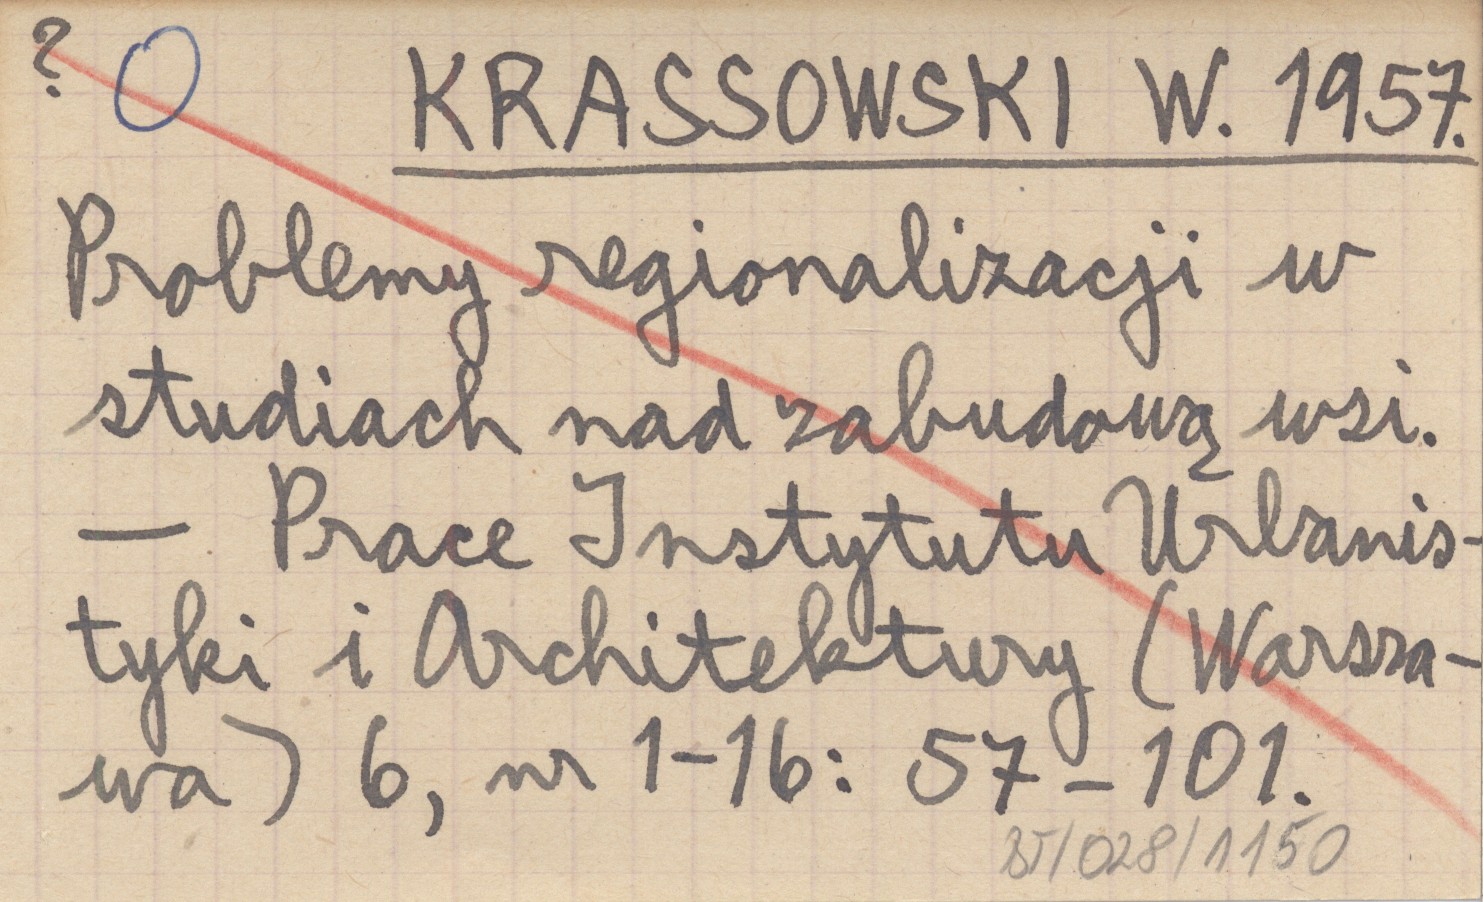 ? O KRASSOWSKI W. 1957.
Problemy regionalizacji w
studiach nad zabudową wsi.
— Prace Instytutu Urbanis-
tyki i Architektury (Warsza-
wa) 6, nr 1-16: 57-101.
BT/028/1150